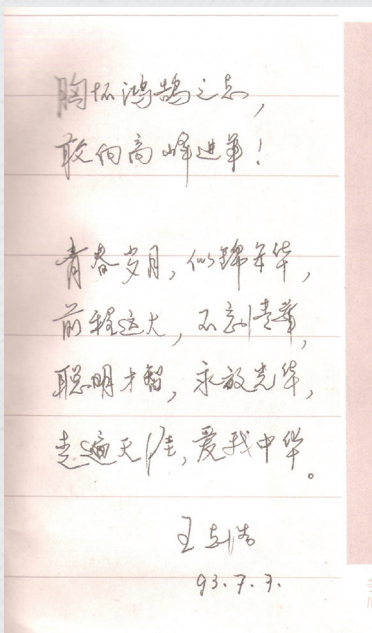 胸怀鸿鹄之志，
敢向高峰进军！
青春岁月，似锦年华，
前程远大，不忘清华，
聪明才智，永放光华，
走遍天涯，爱我中华。
王
93.7.7.